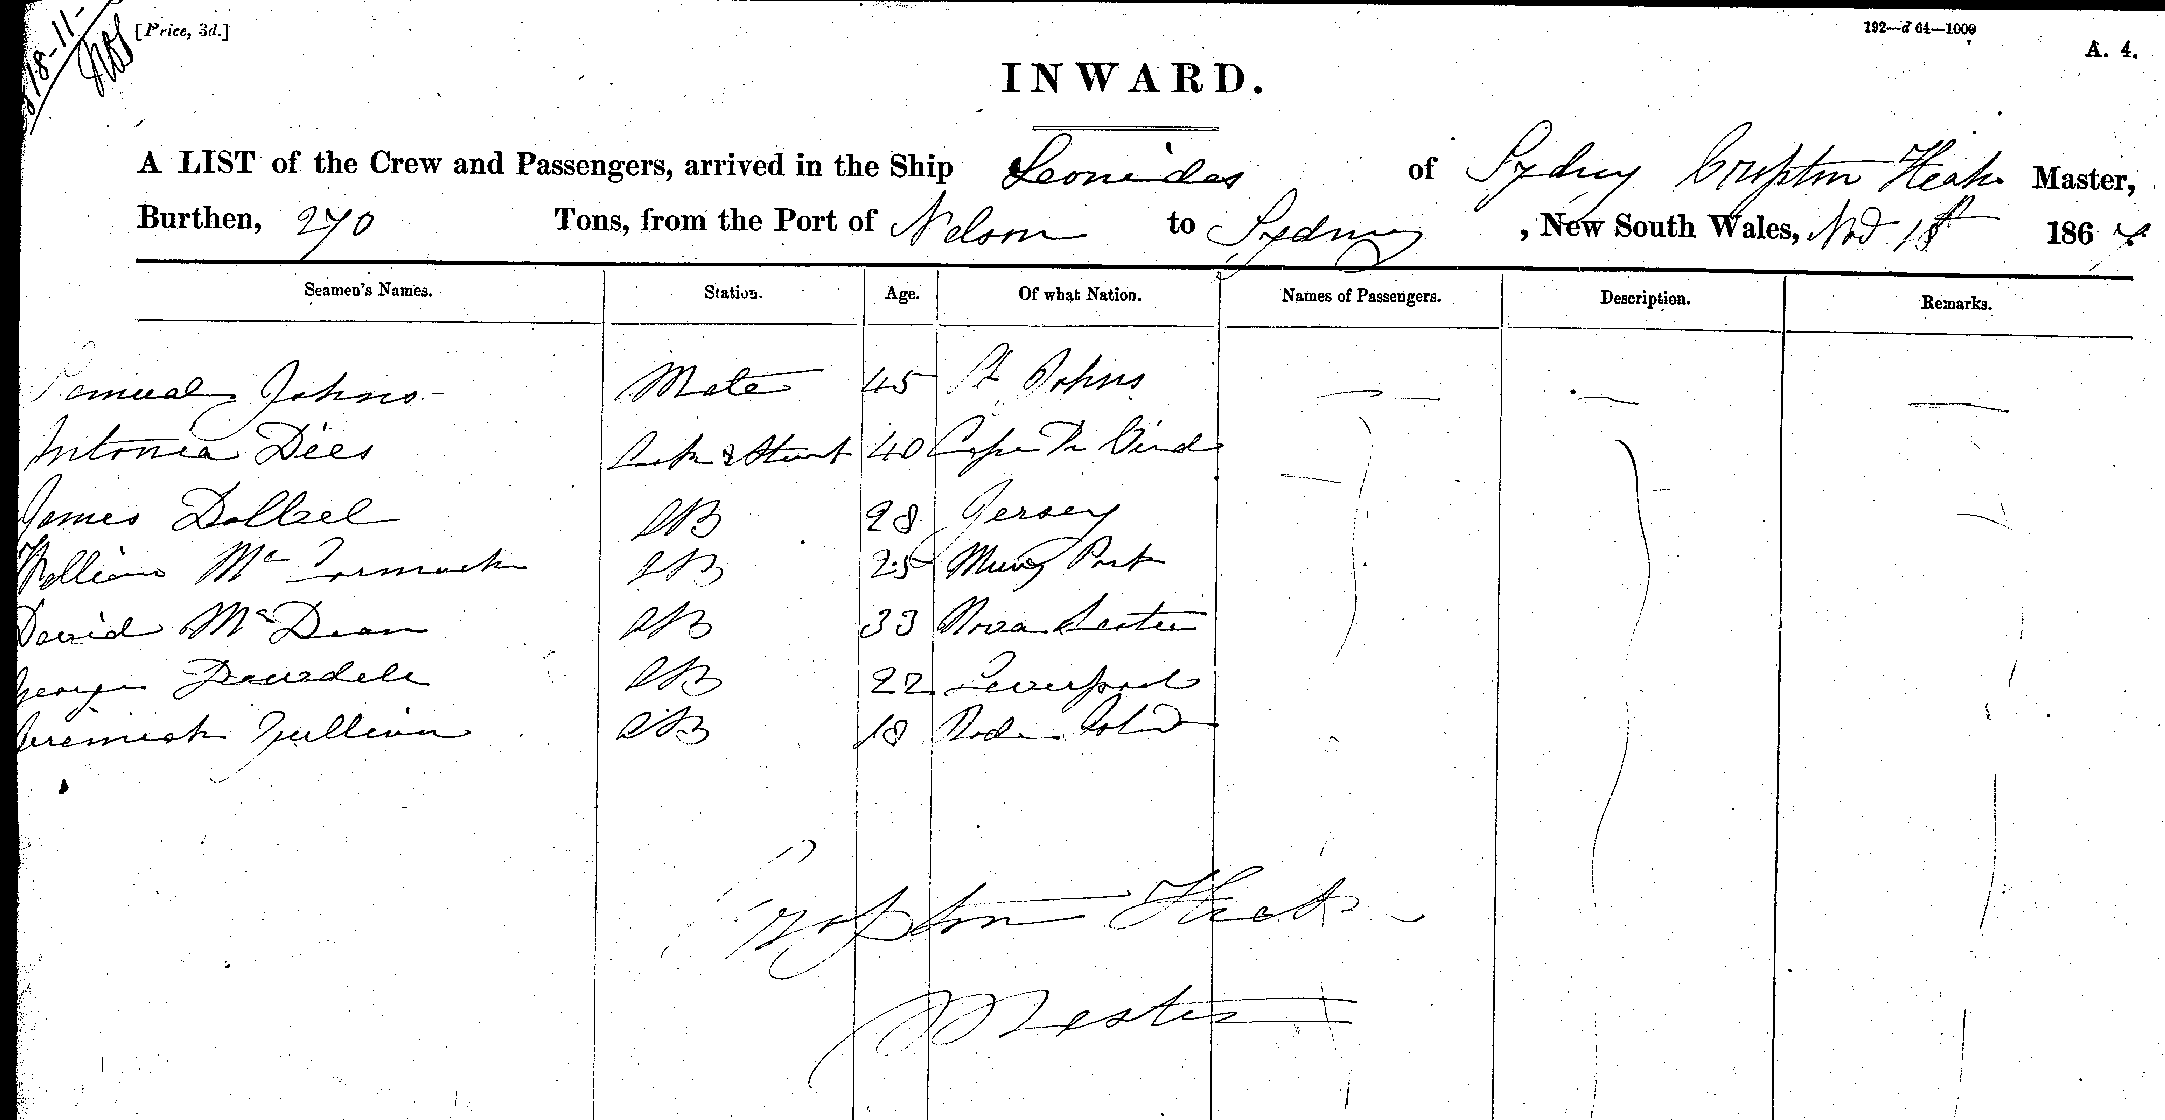 18-11-
[Price, 3d.]
192—d 64—1000
A. 4.
INWARD.
A LIST of the Crew and Passengers, arrived in the Ship Leonidas of Sydney Crofton Heath Master,
Burthen, 270 Tons, from the Port of Nelson to Sydney, New South Wales, Nov 18 1867
Seamen's Names. Station. Age. Of what Nation. Names of Passengers. Description. Remarks.
Samual Johns Mate 45 St Johns
Antonia Dies Cook & Stewt 40 Cape De Verd
James Dolbel AB 28 Jersey
William McCormack AB 25 Mary Port
David McDean AB 33 Nova Scotia
George AB 22 Liverpool
Jeremiah Sullivan AB 18 Rode Island
Master